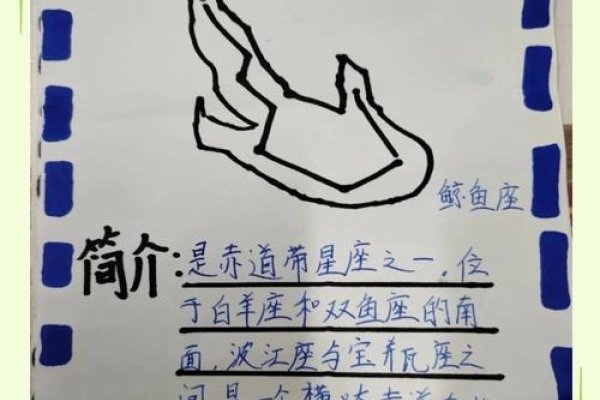 鲸鱼座
简介:是赤道带星座之一,位
于白羊座和双鱼座的南
面,波江座与宝瓶座之
间是一个横跨赤道